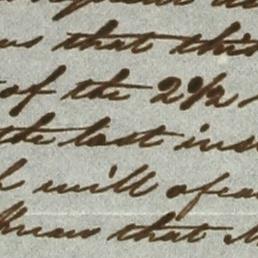 us that this
of the 2½
the last ins
will
know that